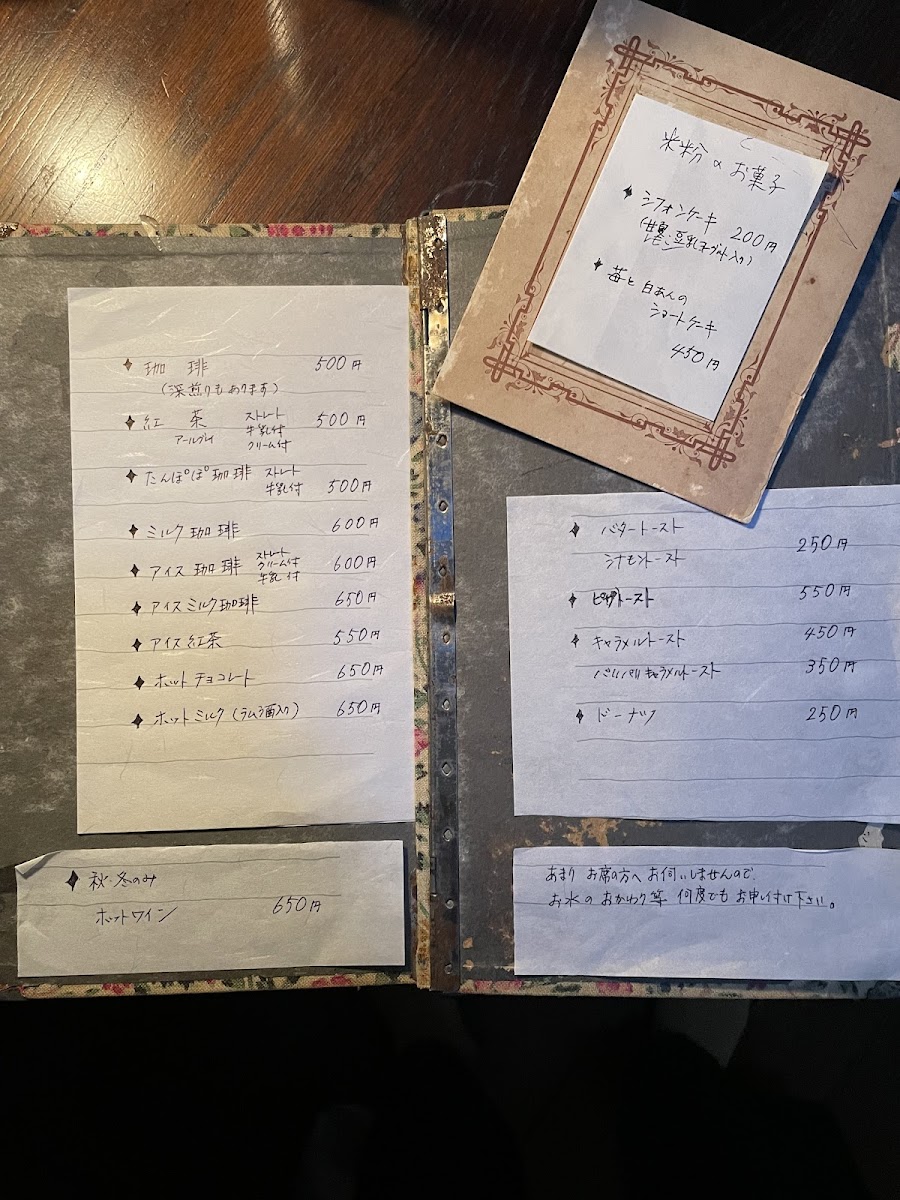 米粉のお菓子
シフォンケーキ 200円
(甘麹・豆乳ヨーグルト入り)
苺と白あんの
ショートケーキ
450円
珈琲 500円
(深煎りもあります)
紅茶 ストレート 500円
アールグレイ 牛乳付
クリーム付
たんぽぽ珈琲 ストレート
牛乳付 500円
ミルク珈琲 600円
アイス珈琲 ストレート 600円
クリーム付
牛乳付
アイスミルク珈琲 650円
アイス紅茶 550円
ホットチョコレート 650円
ホットミルク(ラム酒入り) 650円
秋・冬のみ
ホットワイン 650円
バタートースト
シナモントースト 250円
ピザトースト 550円
キャラメルトースト 450円
バリバリキャラメルトースト 350円
ドーナツ 250円
あまりお席の方へお伺いしませんので、
お水のおかわり等何度でもお申し付け下さい。